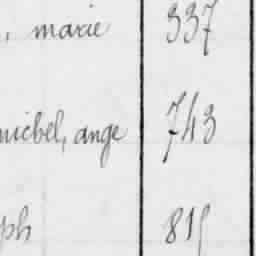 , marie 337
michel, ange 743
ph 815